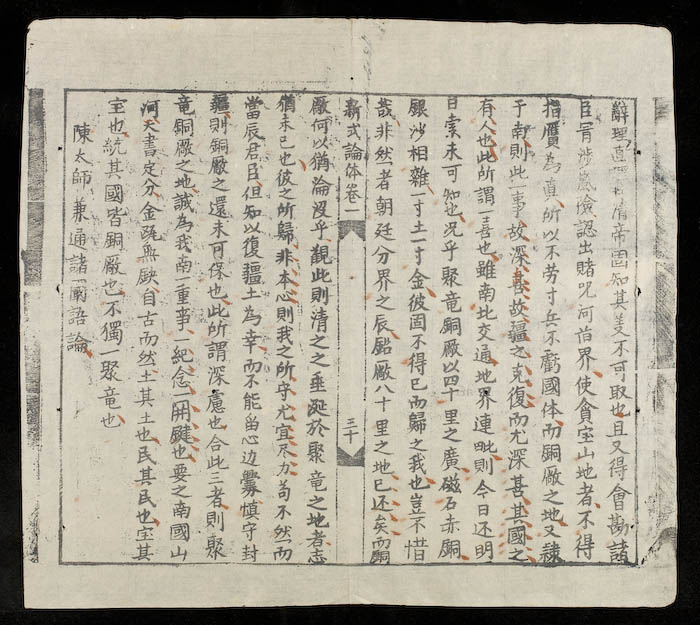 辭理直 清帝固知其羙不可取也且又得會勘諸
臣胥涉嵐險認出賭呪河舊界使貪宝山地者不得
指贋為真所以不劳寸兵不虧國体而銅廠之地又隷
于南則此一事故深喜故疆之克復而尤深喜其國之
有人也此所謂一喜也雖南北交通地界連毗則今日还明
日索未可知也况乎聚竜銅廠以四十里之廣磁石赤銅
銀沙相雜一寸土一寸金彼固不得已而歸之我也豈不惜
哉非然者朝廷分界之辰鉛廠八十里之地已还矣而銅
新式論体卷一
三十
廠何以猶淪没乎觀此則清之之垂涎於聚竜之地者志
猶未已也彼之所歸非本心則我之所守尤宜尽力苟不然而
當辰君臣但知以復疆土為幸而不能留心边釁慎守封
疆則銅廠之還未可保也此所謂深慮也合此三者則聚
竜銅廠之地誠為我南一重事一紀念一関鍵也要之南國山
河天書定分金甌無缺自古而然土其土也民其民也宝其
宝也統其國皆銅廠也不獨一聚竜也
陳太師兼通諸國語論